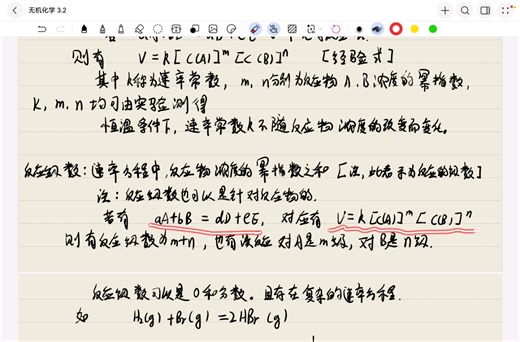 无机化学 3.2
则有 V=k[C(A)]^m[C(B)]^n [经验式]
其中k称为速率常数, m, n分别为反应物A、B浓度的幂指数,
K, m, n均可由实验测得
恒温条件下, 速率常数k不随反应物浓度的改变而变化。
反应级数:速率方程中,反应物浓度的幂指数之和
注:反应级数也可以是针对反应物的.
若有 aA+bB = dD+eE, 对应有 V=k[C(A)]^m[C(B)]^n
则有反应级数为m+n, 也有该反应对A是m级,对B是n级.
反应级数可以是0和分数。且存在复杂的速率方程.
如 H₂(g)+Br(g)=2HBr(g)